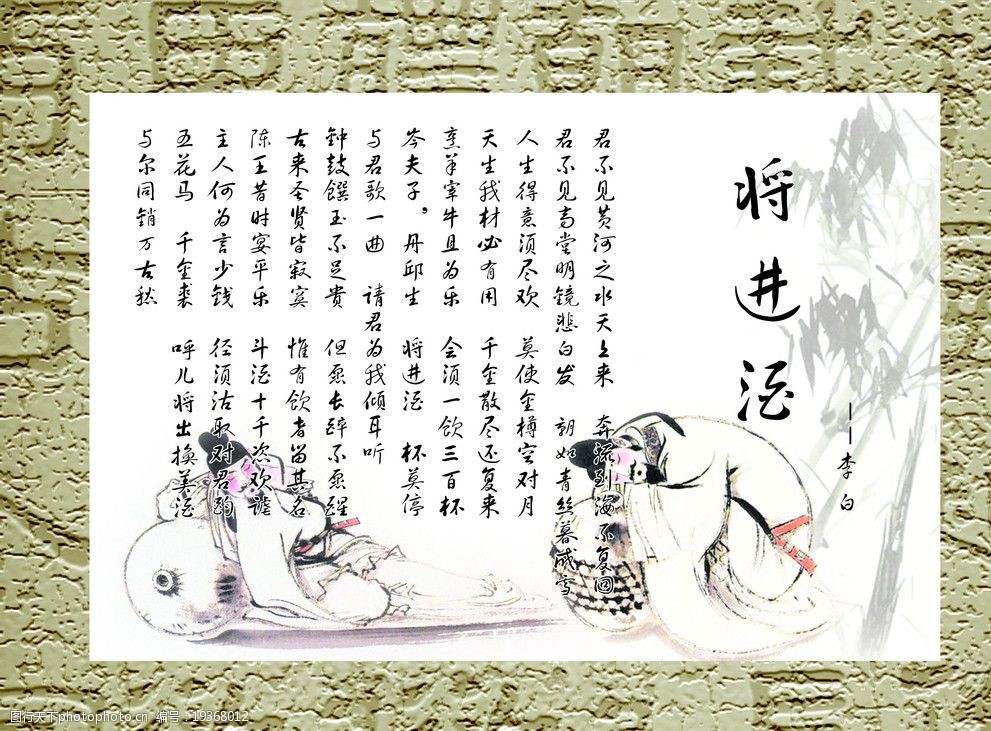 将进酒
——李白
君不见黄河之水天上来 奔流到海不复回
君不见高堂明镜悲白发 朝如青丝暮成雪
人生得意须尽欢 莫使金樽空对月
天生我材必有用 千金散尽还复来
烹羊宰牛且为乐 会须一饮三百杯
岑夫子，丹邱生 将进酒 杯莫停
与君歌一曲 请君为我倾耳听
钟鼓馔玉不足贵 但愿长醉不愿醒
古来圣贤皆寂寞 惟有饮者留其名
陈王昔时宴平乐 斗酒十千恣欢谑
主人何为言少钱 径须沽取对君酌
五花马 千金裘 呼儿将出换美酒
与尔同销万古愁
图行天下photophoto.cn 编号：19368012